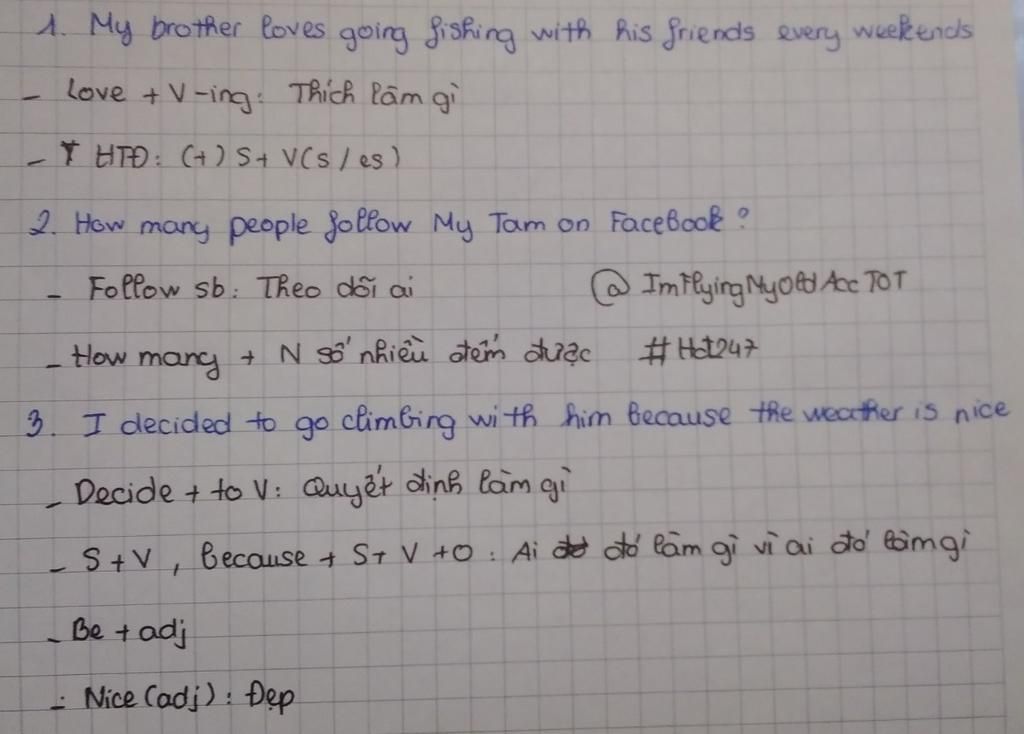 1. My brother loves going fishing with his friends every weekends
- Love + V-ing: Thích làm gì
- T HTĐ: (+) S + V(s/es)
2. How many people follow My Tam on FaceBook?
- Follow sb: Theo dõi ai @ImFlyingMyOldAccTOT
- How many + N số nhiều đếm được #Hot247
3. I decided to go climbing with him because the weather is nice
- Decide + to V: Quyết định làm gì
- S + V, because + S + V + O: Ai đó làm gì vì ai đó làm gì
- Be + adj
- Nice (adj): Đẹp